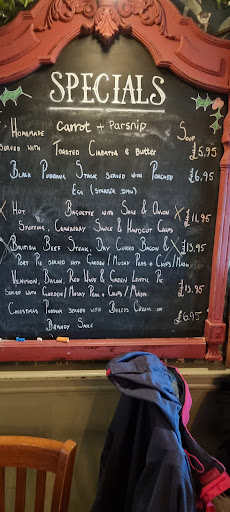 SPECIALS
Homemade Carrot + Parsnip Soup
Served with Toasted Ciabatta & Butter £5.95
Black Pudding Stack served with Poached £6.95
Egg (Starter Dish)
Hot Baguette with Sage & Onion £11.95
Stuffing, Cranberry Sauce & Handcut Chips
Beef Steak, Dry Cured Bacon & £13.95
Port Pie served with Garden / Mushy Peas + Chips / Mash
Venison, Bacon, Red Wine & Garden Lentil Pie
Served with Garden / Mushy Peas + Chips / Mash £13.95
Christmas Pudding served with Baileys Cream or £6.95
Brandy Sauce